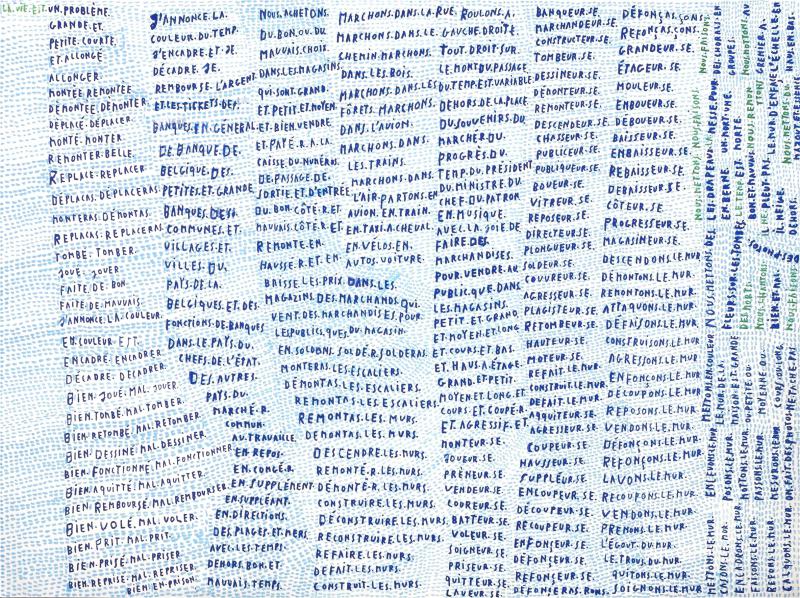 LA.VIE.EST.UN.PROBLÈME.
GRANDE.ET.
PETITE.COURTE.
ET.ALLONGÉ.
ALLONGER.
MONTÉE.REMONTÉE
DÉMONTÉE.DÉMONTER.
DÉPLACE.DÉPLACER.
MONTÉ.MONTER.
REMONTER.BELLE.
REPLACE.REPLACER.
DÉPLACAS.DÉPLACERAS
MONTERAS.DÉMONTAS.
REPLACAS.REPLACERAS
TOMBE.TOMBER.
JOUE.JOUER.
FAITE.DE.BON.
FAITE.DE.MAUVAIS.
J'ANNONCE.LA.COULEUR.
EN.COULEUR.EST.
ENCADRE.ENCADRER.
DÉCADRE.DÉCADRER.
BIEN.JOUÉ.MAL.JOUER.
BIEN.TOMBÉ.MAL.TOMBER.
BIEN.RETOMBÉ.MAL.RETOMBER.
BIEN.DESSINÉ.MAL.DESSINER.
BIEN.FONCTIONNE.MAL.FONCTIONNER
BIEN.AQUITTÉ.MAL.AQUITTER.
BIEN.REMBOURSÉ.MAL.REMBOURSER
BIEN.VOLÉ.MAL.VOLER.
BIEN.PRIT.MAL.PRIT.
BIEN.PRISÉ.MAL.PRISER.
BIEN.REPRISE.MAL.REPRISER.
BIEN.EN.PRISON.
J'ANNONCE.LA.
COULEUR.DU.TEMP.
J'ENCADRE.ET.JE.
DÉCADRE.JE.
REMBOURSE.L'ARGENT
ET.LES.TICKETS.DES.
BANQUES.EN.GÉNÉRAL
DE.BANQUE.DE.
BELGIQUE.DES.
PETITES.ET.GRANDE
BANQUES.DES.
COMMUNES.ET.
VILLAGES.ET.
VILLES.DU.
PAYS.DE.LA.
BELGIQUES.ET.DES.
FONCTIONS.DE.BANQUES
DANS.LE.PAYS.DU.
CHEFS.DE.L'ÉTAT.
DES.AUTRES.
PAYS.DU.
MARCHÉ.R.
COMMUN.
AU.TRAVAILLE.
EN.REPOS.
EN.CONGÉ.R.
EN.SUPPLÉMENT
EN.SUPPLÉANT.
EN.DIRECTIONS.
DES.PLAGES.ET.MERS
AVEC.LES.TEMPS.
DEHORS.BON.ET
MAUVAIS.TEMPS.
NOUS.ACHETONS.
DU.BON.OU.DU
MAUVAIS.CHOIX.
DANS.LES.MAGASINS
QUI.SONT.GRAND.
ET.PETIT.ET.MOYEN
ET.BIEN.VENDRE.
ET.PAYÉ.R.A.LA.
CAISSE.DU.NUMÉROS
DE.PASSAGE.DE.
SORTIE.ET.D'ENTRÉE
DU.BON.CÔTÉ.R.ET
MAUVAIS.CÔTÉ.R.ET
REMONTE.EN.
HAUSSE.R.ET.EN.
BAISSE.LES.PRIS.DANS.LES.
MAGASINS.DES.MARCHANDS.QUI.
VENT.DES.MARCHANDISES.POUR.
LES.PUBLICS.QUES.DU.MAGASIN.
EN.SOLDONS.SOLDÉ.R.SOLDERAS.
MONTERAS.LES.ESCALIERS.
DÉMONTAS.LES.ESCALIERS.
REMONTAS.LES.ESCALIERS.
REMONTAS.LES.MURS.
DÉMONTAS.LES.MURS.
DESCENDRE.LES.MURS.
REMONTÉ.R.LES.MURS.
DÉMONTÉ.R.LES.MURS.
CONSTRUIRE.LES.MURS.
DÉCONSTRUIRE.LES.MURS.
RECONSTRUIRE.LES.MURS.
REFAIRE.LES.MURS.
DÉFAIT.LES.MURS.
CONSTRUIT.LES.MURS.
MARCHONS.DANS.LA.RUE.
MARCHONS.DANS.LE.
CHEMIN.MARCHONS.
DANS.LES.BOIS.
MARCHONS.DANS.LES
FORÊTS.MARCHONS.
DANS.L'AVION.
MARCHONS.DANS.
LES.TRAINS.
MARCHONS.DANS.
L'AIR.PARTONS.EN
AVION.EN.TRAIN.
EN.TAXI.A.CHEVAL.
EN.VÉLOS.EN.
AUTOS.VOITURE.
ROULONS.A.
GAUCHE.DROITE.
TOUT.DROIT.SUR.
LE.MONT.DU.PASSAGE
DU.TEMP.EST.VARIABLE
DEHORS.DE.LA.PLACE
DU.SOUVENIRS.DU.
MARCHER.DU.
PROGRÈS.DU.
TEMP.DU.PRÉSIDENT
DU.MINISTRE.DU.
CHEF.DU.PATRON
EN.MUSIQUE.
AVEC.LA.JOIE.DE
FAIRE.DES.
MARCHANDISES.
POUR.VENDRE.AU
PUBLIC.QUE.DANS
LES.MAGASINS.
PETIT.ET.GRAND.
ET.MOYEN.ET.LONG
ET.COURS.ET.BAS.
ET.HAUS.A.ÉTAGE
GRAND.ET.PETIT.
MOYEN.ET.LONG.ET.
COURS.ET.COUPÉ.R.
ET.AGRESSIF.ET
MONTEUR.SE.
JOUEUR.SE.
PRÉNEUR.SE.
VENDEUR.SE.
COUREUR.SE.
BATTEUR.SE.
VOLEUR.SE.
SOIGNEUR.SE.
PRISEUR.SE.
QUITTEUR.SE
LAVEUR.SE.
BANQUEUR.SE.
MARCHANDEUR.SE
CONSTRUCTEUR.SE.
TOMBEUR.SE.
DESSINEUR.SE.
DÉMONTEUR.SE.
REMONTEUR.SE.
DESCENDEUR.SE.
CHASSEUR.SE.
PUBLICEUR.SE.
PUBLIQUEUR.SE.
BOUEUR.SE.
VITREUR.SE.
REPOSEUR.SE.
DIRECTEUR.SE.
PLONGUEUR.SE.
SOLDEUR.SE.
COUVREUR.SE.
AGRESSEUR.SE.
PLAGISTEUR.SE.
RETOMBEUR.SE.
HAUTEUR.SE.
MOTEUR.SE.
REFAIT.LE.MUR.
CONSTRUIT.LE.MUR.
DÉFAIT.LE.MUR.
AQQUITEUR.SE.
AGRESSEUR.SE.
COUPEUR.SE.
HAUSSEUR.SE.
SUPPLÉUR.SE.
ENCOUPEUR.SE.
DÉCOUPEUR.SE.
RECOUPEUR.SE.
ENFONSEUR.SE.
DÉFONSEUR.SE.
REFONSEUR.SE.
DÉFONSERAS.RONS.
DÉFONÇAS.ÇONS.
REFONÇAS.ÇONS.
GRANDEUR.SE.
ÉTAGEUR.SE.
MOULEUR.SE.
EMBOUEUR.SE.
DÉBOUEUR.SE.
BAISSEUR.SE.
EMBAISSEUR.SE.
REBAISSEUR.SE.
DÉBAISSEUR.SE.
CÔTEUR.SE.
PROGRESSEUR.SE.
MAGASINEUR.SE.
DESCENDONS.LE.MUR
DÉMONTONS.LE.MUR.
REMONTONS.LE.MUR.
ATTAQUONS.LE.MUR.
DÉFAISONS.LE.MUR.
CONSTRUISONS.LE.MUR.
AGRESSONS.LE.MUR.
ENFONÇONS.LE.MUR.
DÉCOUPONS.LE.MUR.
REPOSONS.LE.MUR.
VENDONS.LE.MUR.
DÉFONÇONS.LE.MUR.
REFONÇONS.LE.MUR.
LAVONS.LE.MUR.
RECOUPONS.LE.MUR.
VENDONS.LE.MUR.
PRENONS.LE.MUR.
L'ÉGOUT.DU.MUR.
LE.TROUS.DU.MUR.
QUITONS.LE.MUR.
SOIGNONS.LE.MUR.
NOUS.METTONS.NOUS.FAISONS.
NOUS.FAISONS.